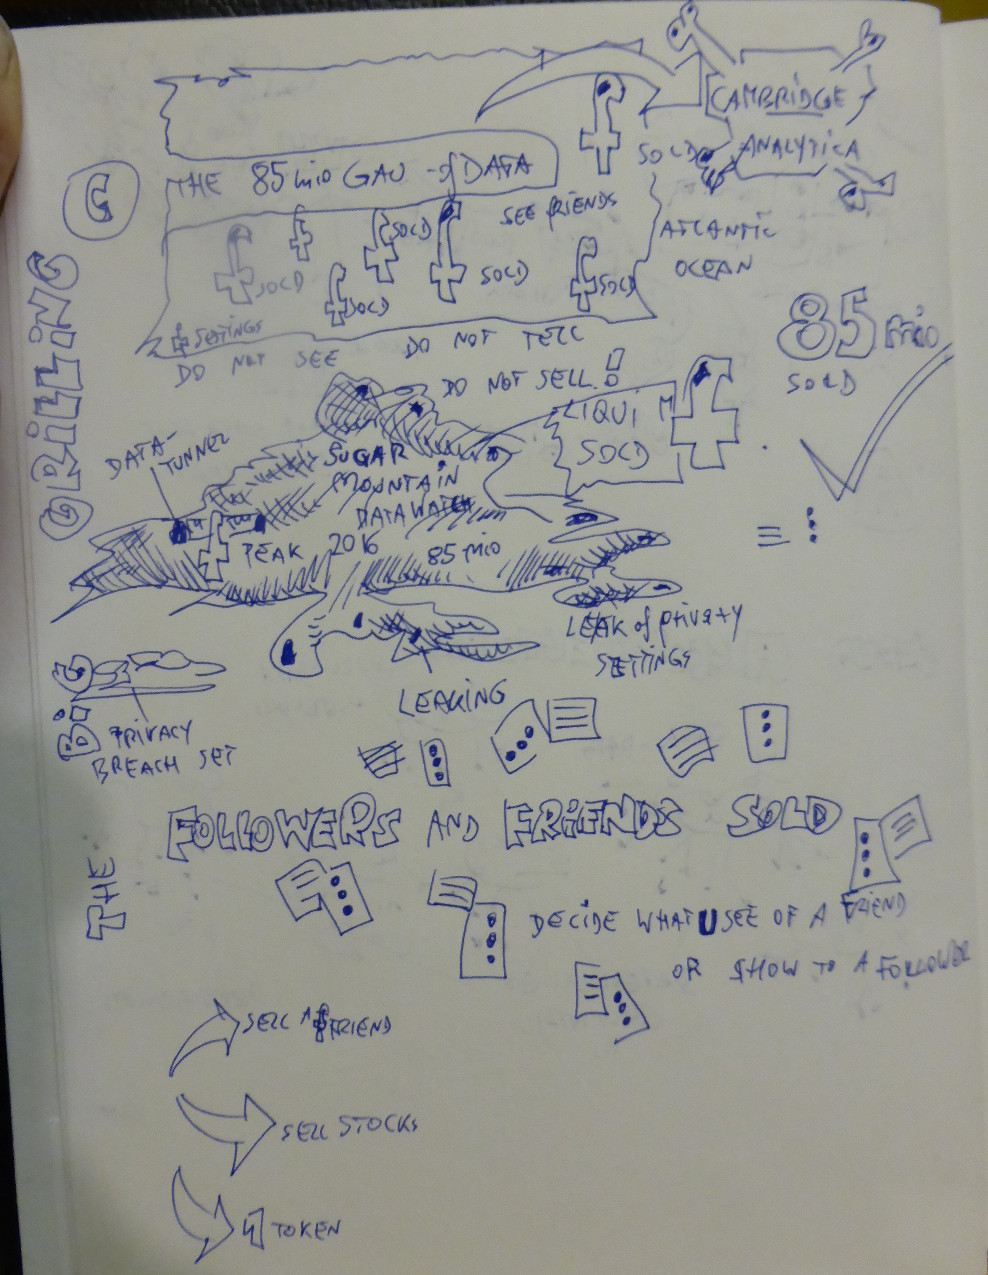 CAMBRIDGE
ANALYTICA
SOLD
THE 85 mio GAU of DATA
SEE FRIENDS
ATLANTIC
OCEAN
G
SOLD
SOLD
SOLD
SOLD
SOLD
SETTINGS
DO NOT SEE
DO NOT TELL
DO NOT SELL!
85 mio
SOLD
LIQUI
SOLD
DATA-
TUNNEL
SUGAR
MOUNTAIN
DATA WATCH
PEAK 2016
85 mio
LEAK of privaty
SETTINGS
LEAKING
PRIVACY
BREACH SET
THE BiG GRiLLiNG
FOLLOWERS AND FRiENDS SOLD
DECIDE WHAT U SEE OF A FRIEND
OR SHOW TO A FOLLOWER
SELL A FRIEND
SELL STOCKS
TOKEN